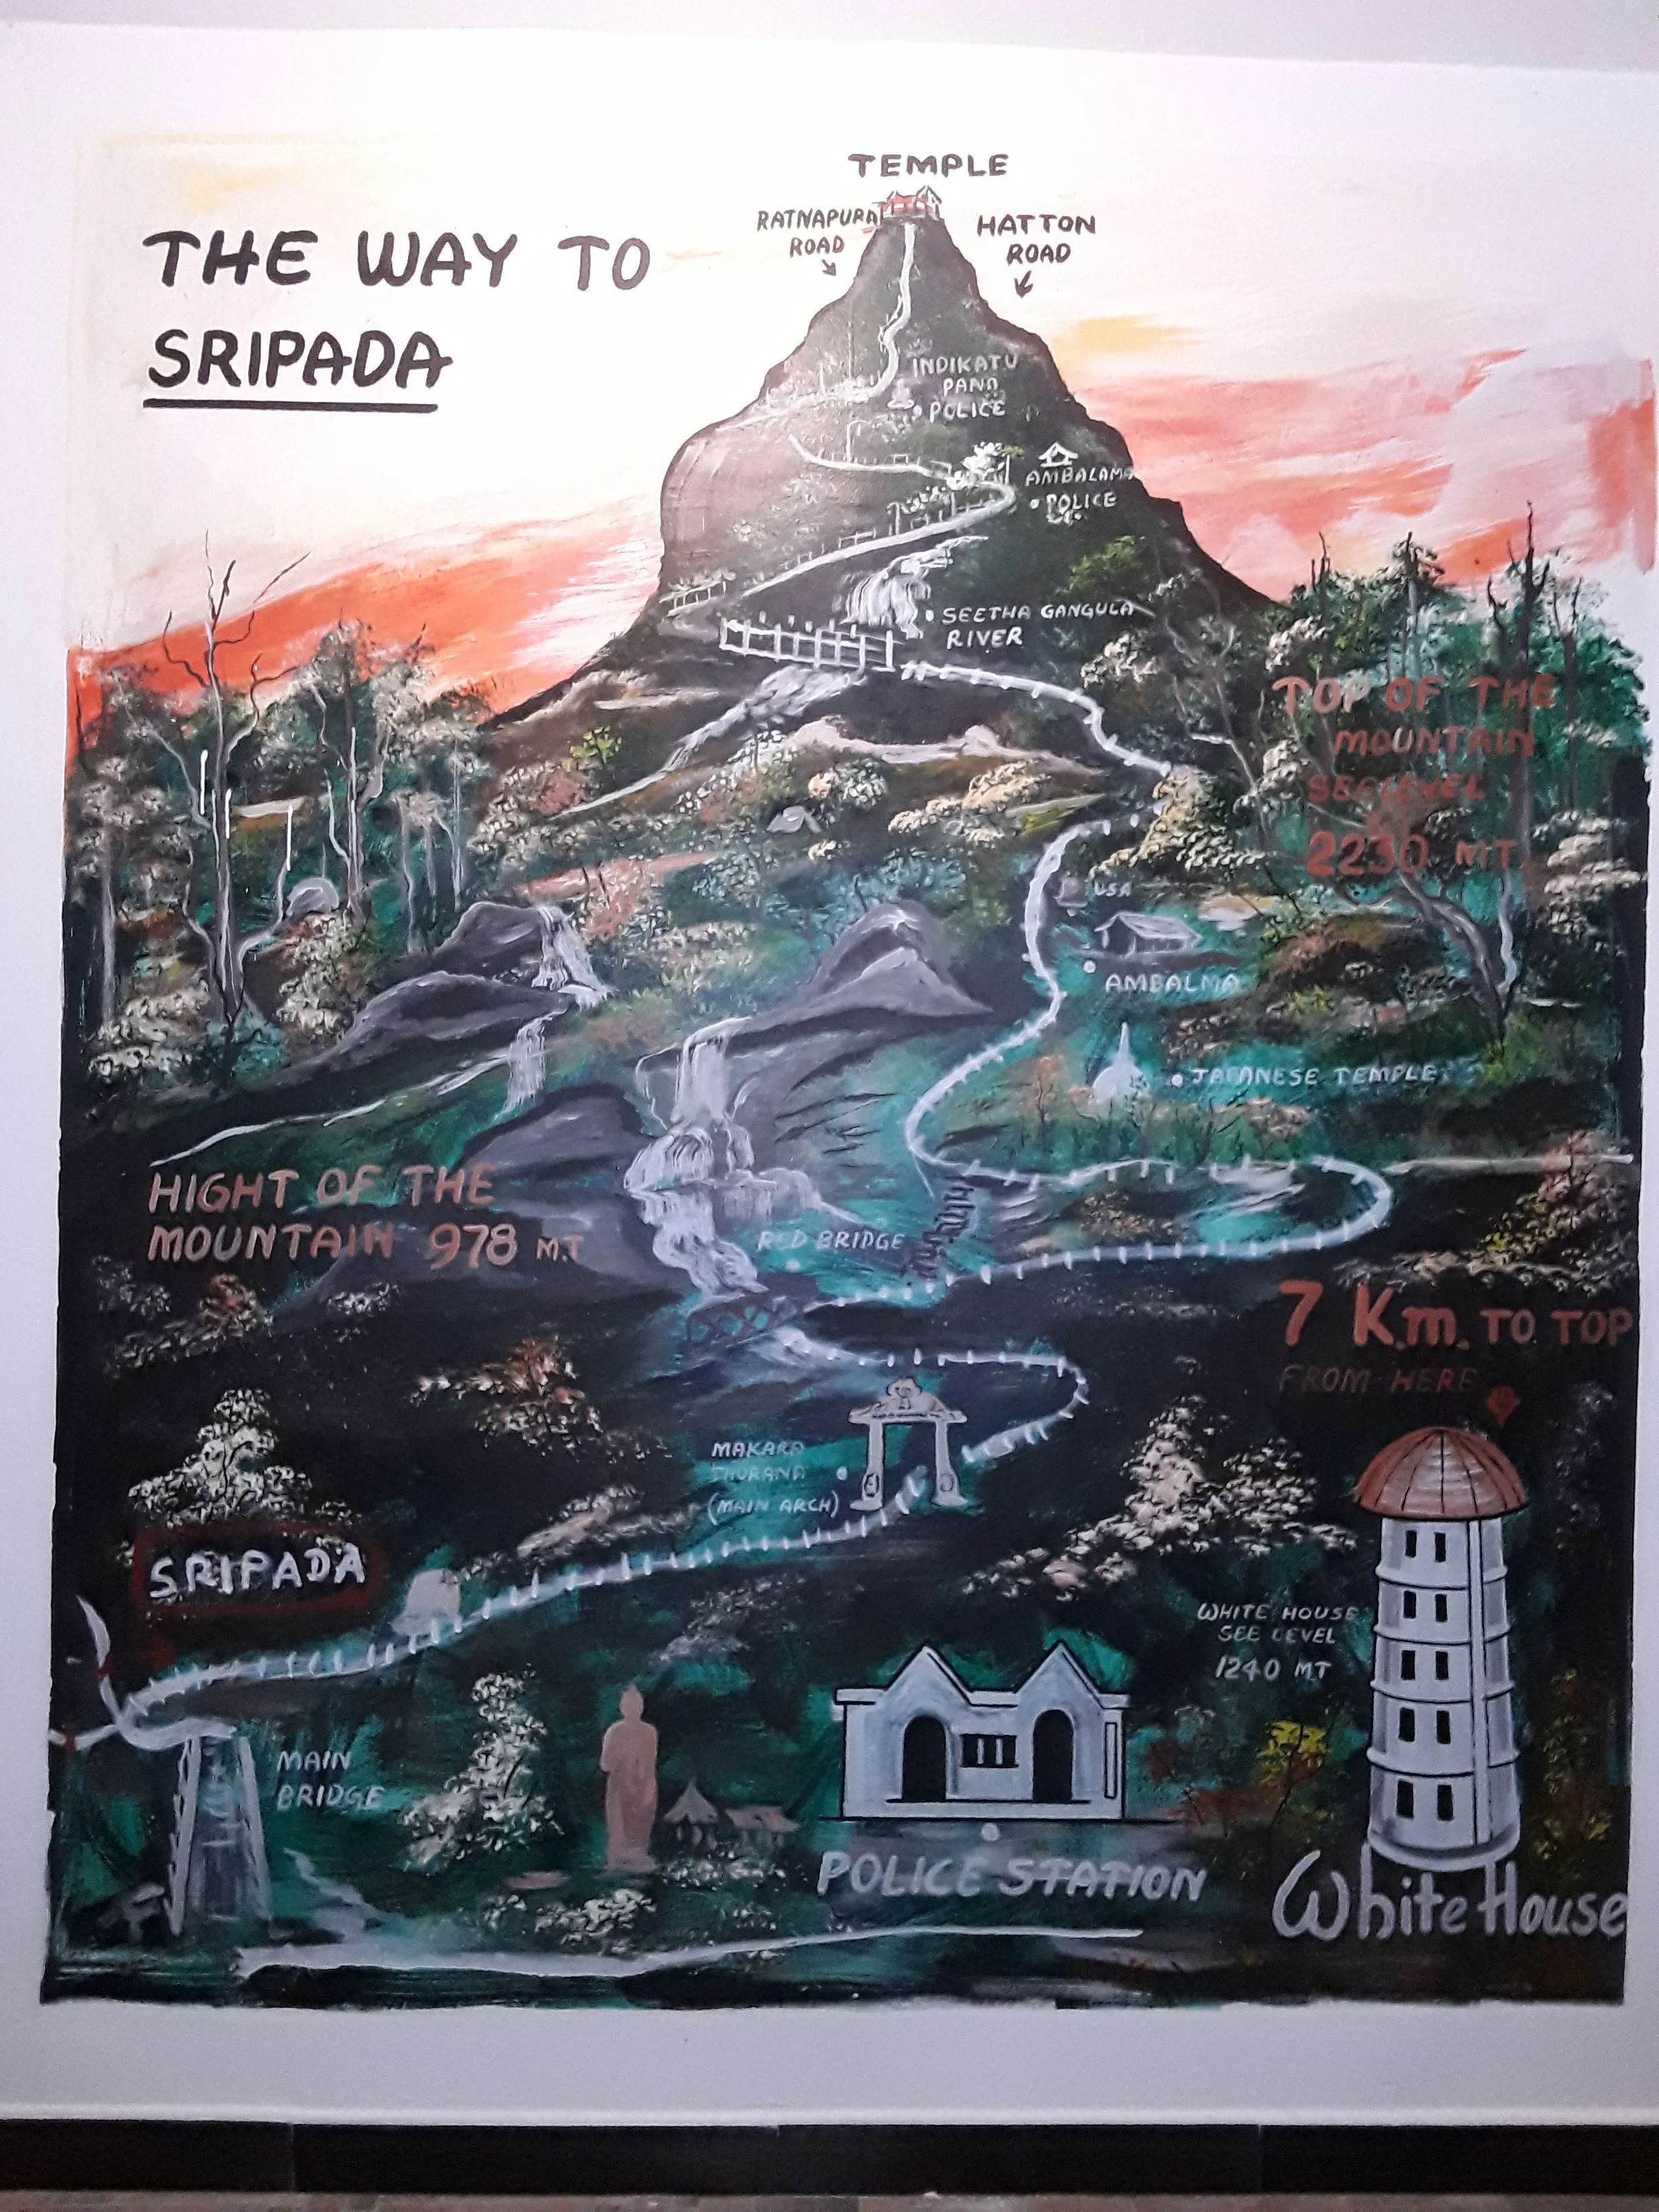 THE WAY TO
SRIPADA
TEMPLE
RATNAPURA
ROAD
HATTON
ROAD
INDIKATU
PANA
POLICE
AMBALAMA
POLICE
SEETHA GANGULA
RIVER
TOP OF THE
MOUNTAIN
SEELEVEL
2230 MT
AMBALMA
JAPANESE TEMPLE
HIGHT OF THE
MOUNTAIN 978 MT
RED BRIDGE
7 Km. TO TOP
FROM HERE
MAKARA
THURANA
(MAIN ARCH)
SRIPADA
WHITE HOUSE
SEE LEVEL
1240 MT
MAIN
BRIDGE
POLICE STATION
White House